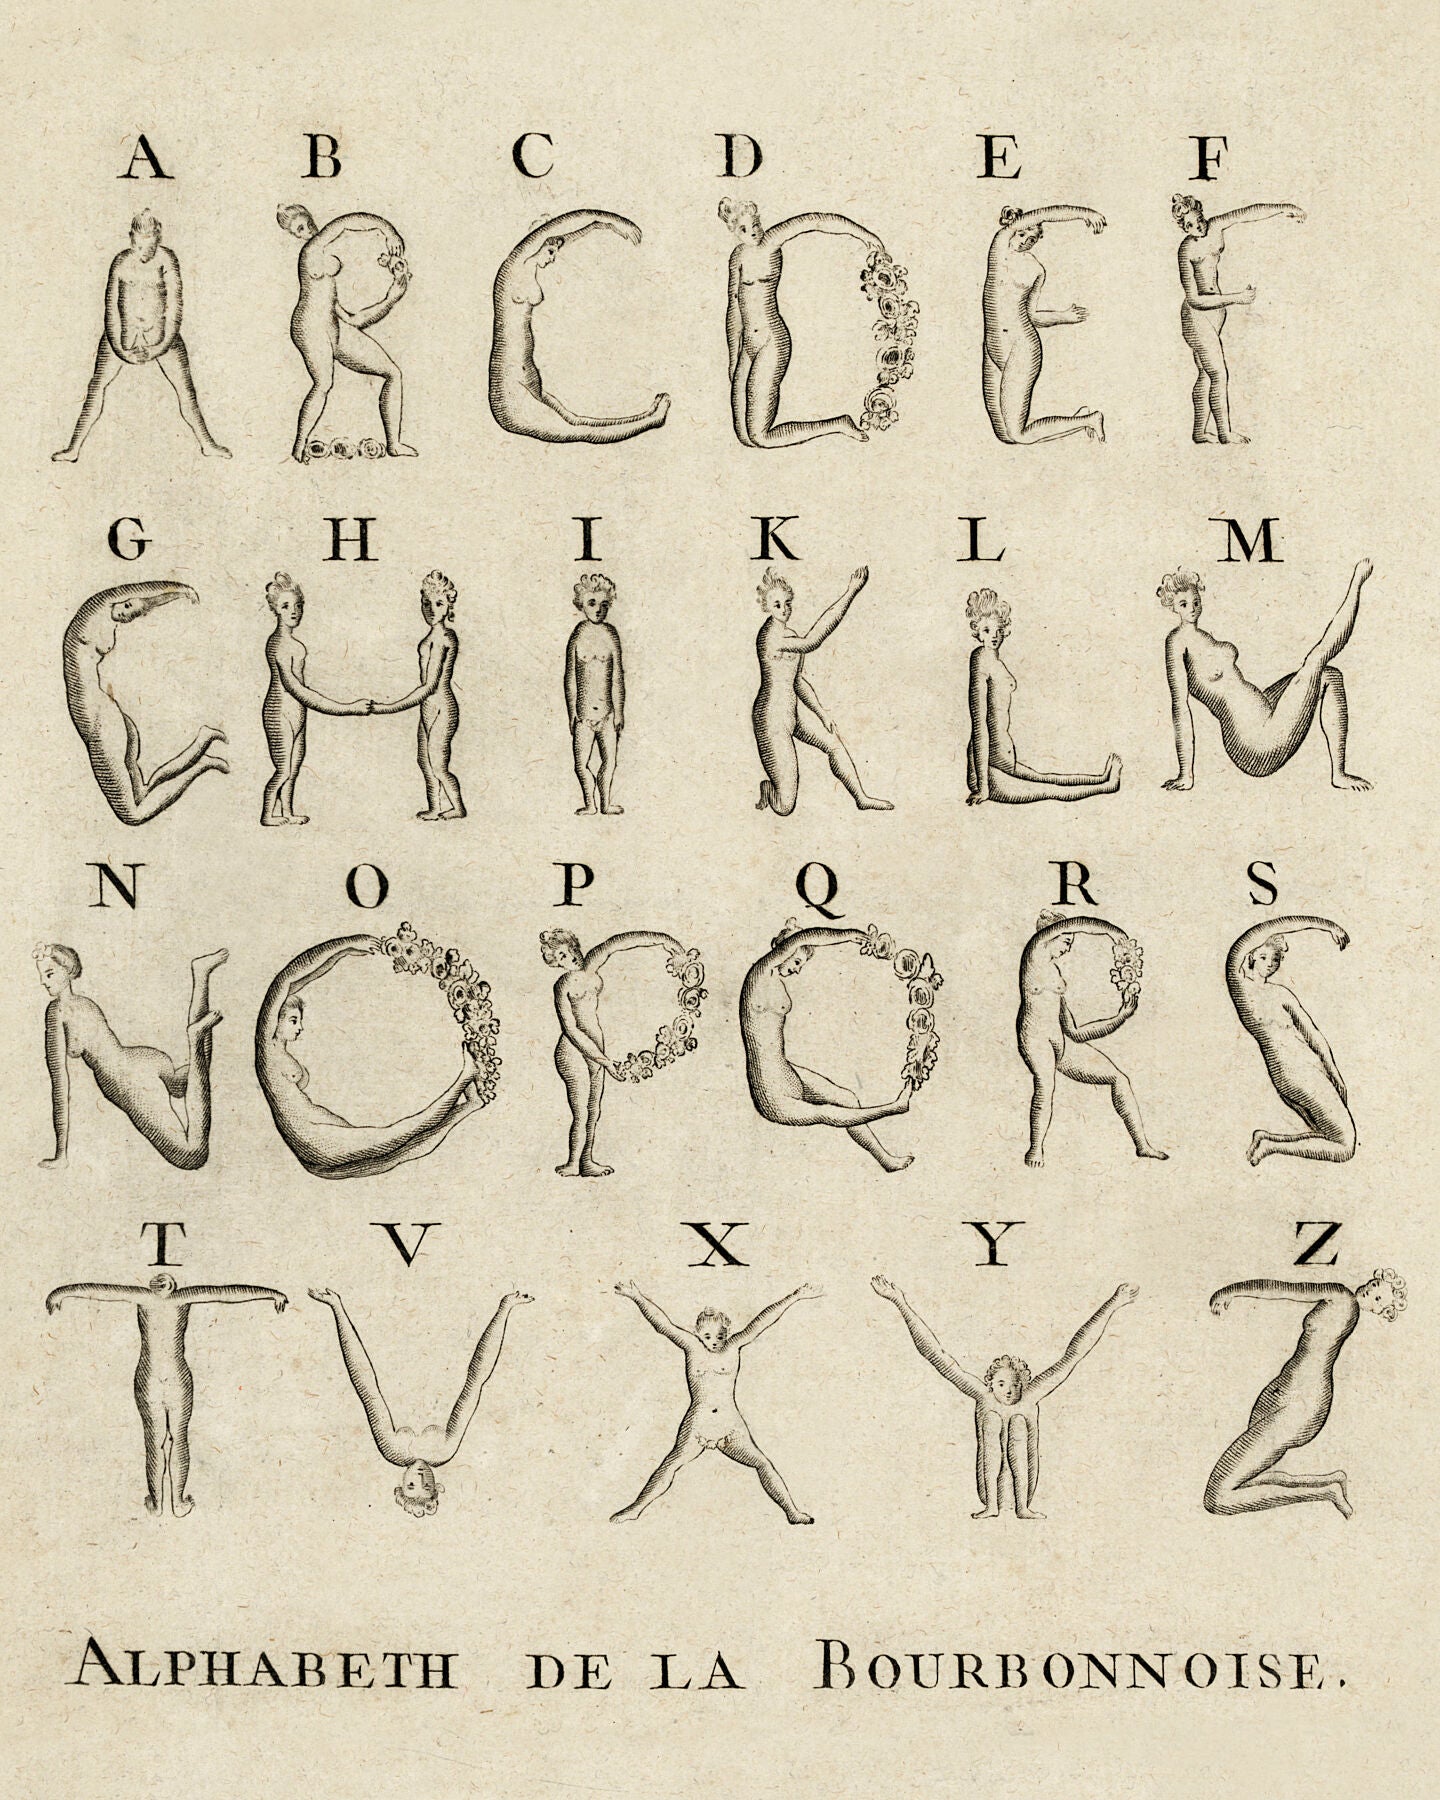 A B C D E F
G H I K L M
N O P Q R S
T V X Y Z
ALPHABETH DE LA BOURBONNOISE.